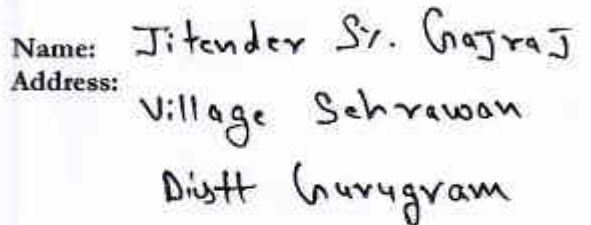 Name: Jitender S/. Gajraj
Address:
Village Sehrawan
Distt Gurugram